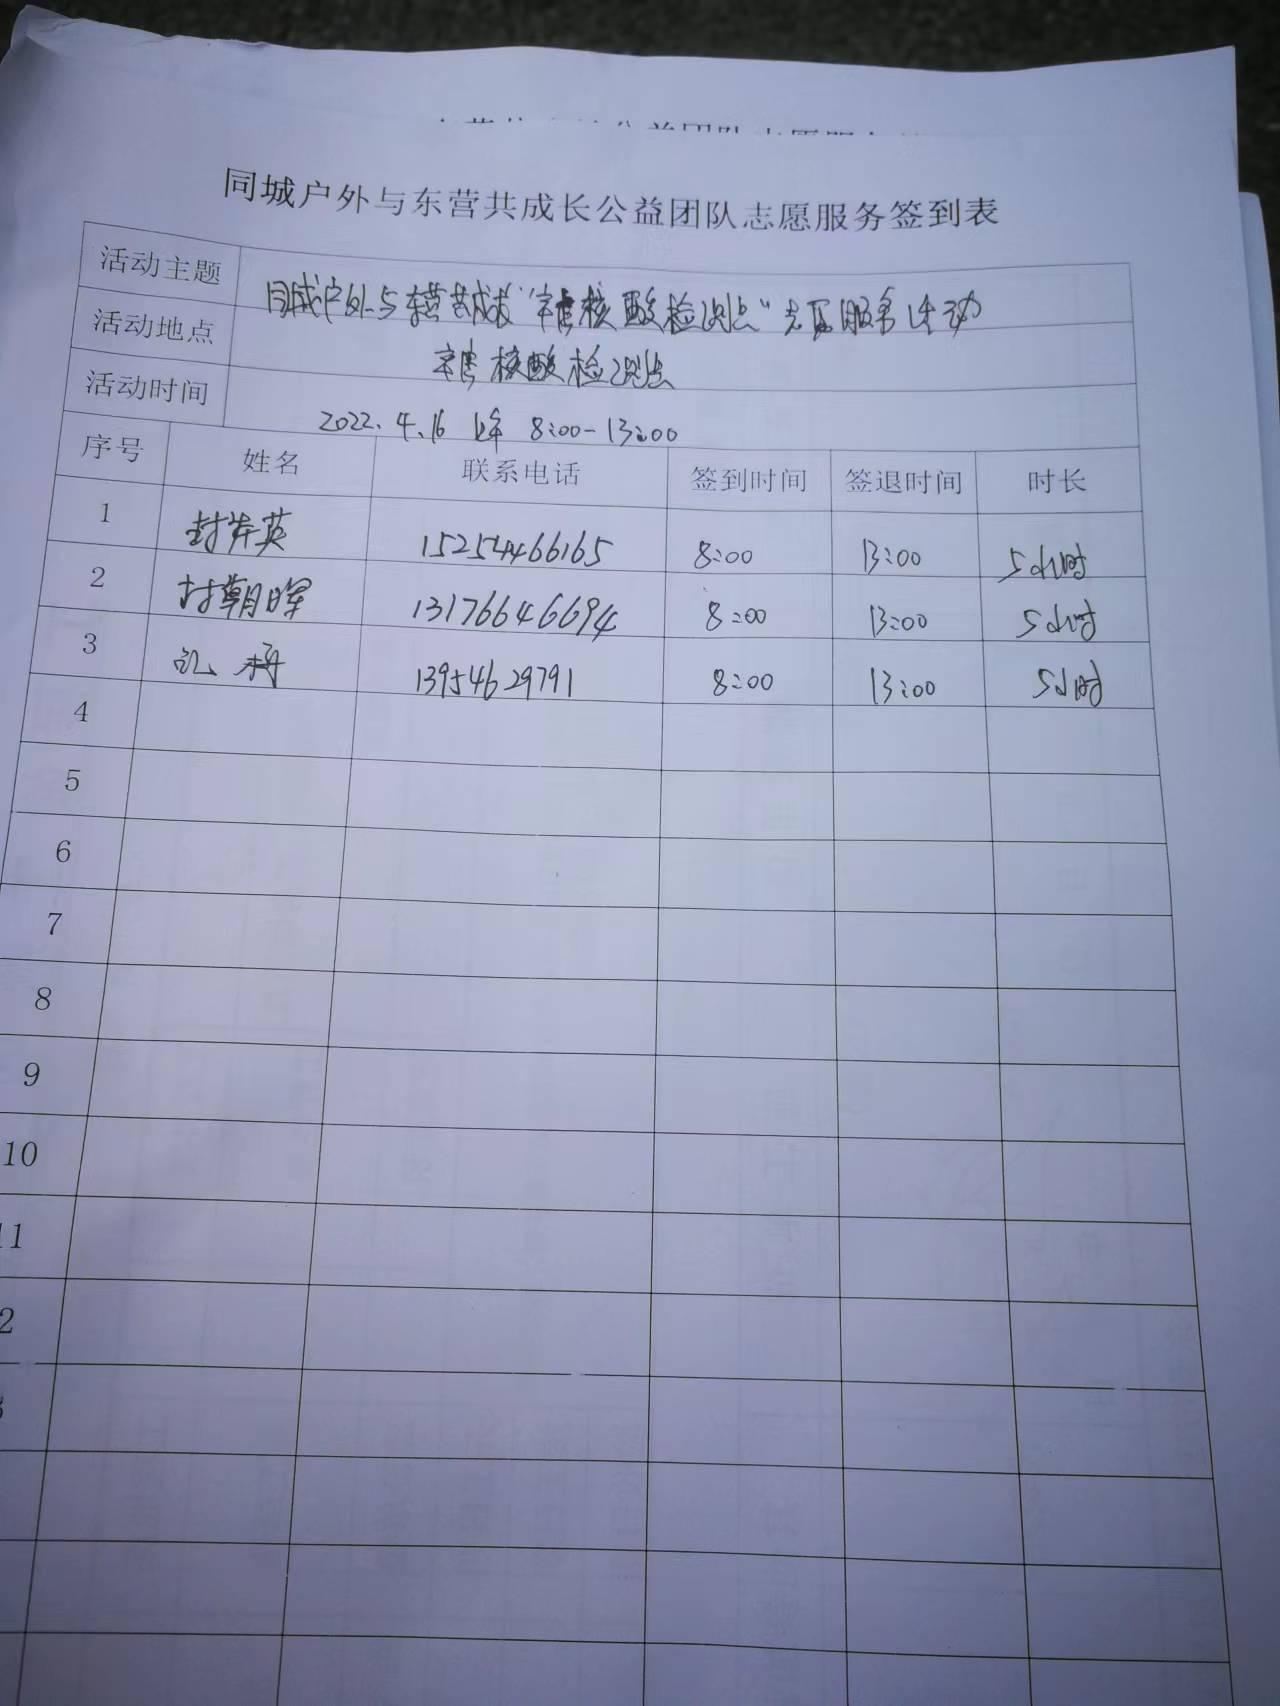 同城户外与东营共成长公益团队志愿服务签到表
活动主题 同城户外与东营共成长“核酸检测点”志愿服务活动
活动地点 核酸检测点
活动时间 2022.4.16 上午 8:00-13:00
序号 姓名 联系电话 签到时间 签退时间 时长
1 封英 15254466165 8:00 13:00 5小时
2 朝晖 13176646694 8:00 13:00 5小时
3 13954629791 8:00 13:00 5小时
4
5
6
7
8
9
10
11
2
3